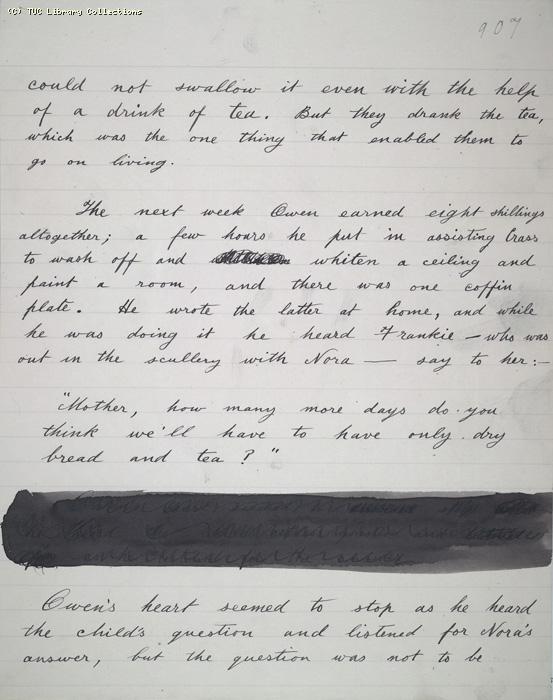 (C) TUC Library Collections
907
could not swallow it even with the help
of a drink of tea. But they drank the tea,
which was the one thing that enabled them to
go on living.
The next week Owen earned eight shillings
altogether; a few hours he put in assisting Crass
to wash off and whiten a ceiling and
paint a room, and there was one coffin
plate. He wrote the latter at home, and while
he was doing it he heard Frankie – who was
out in the scullery with Nora — say to her:–
"Mother, how many more days do you
think we'll have to have only dry
bread and tea?"
Owen's heart seemed to stop as he heard
the child's question and listened for Nora's
answer, but the question was not to be